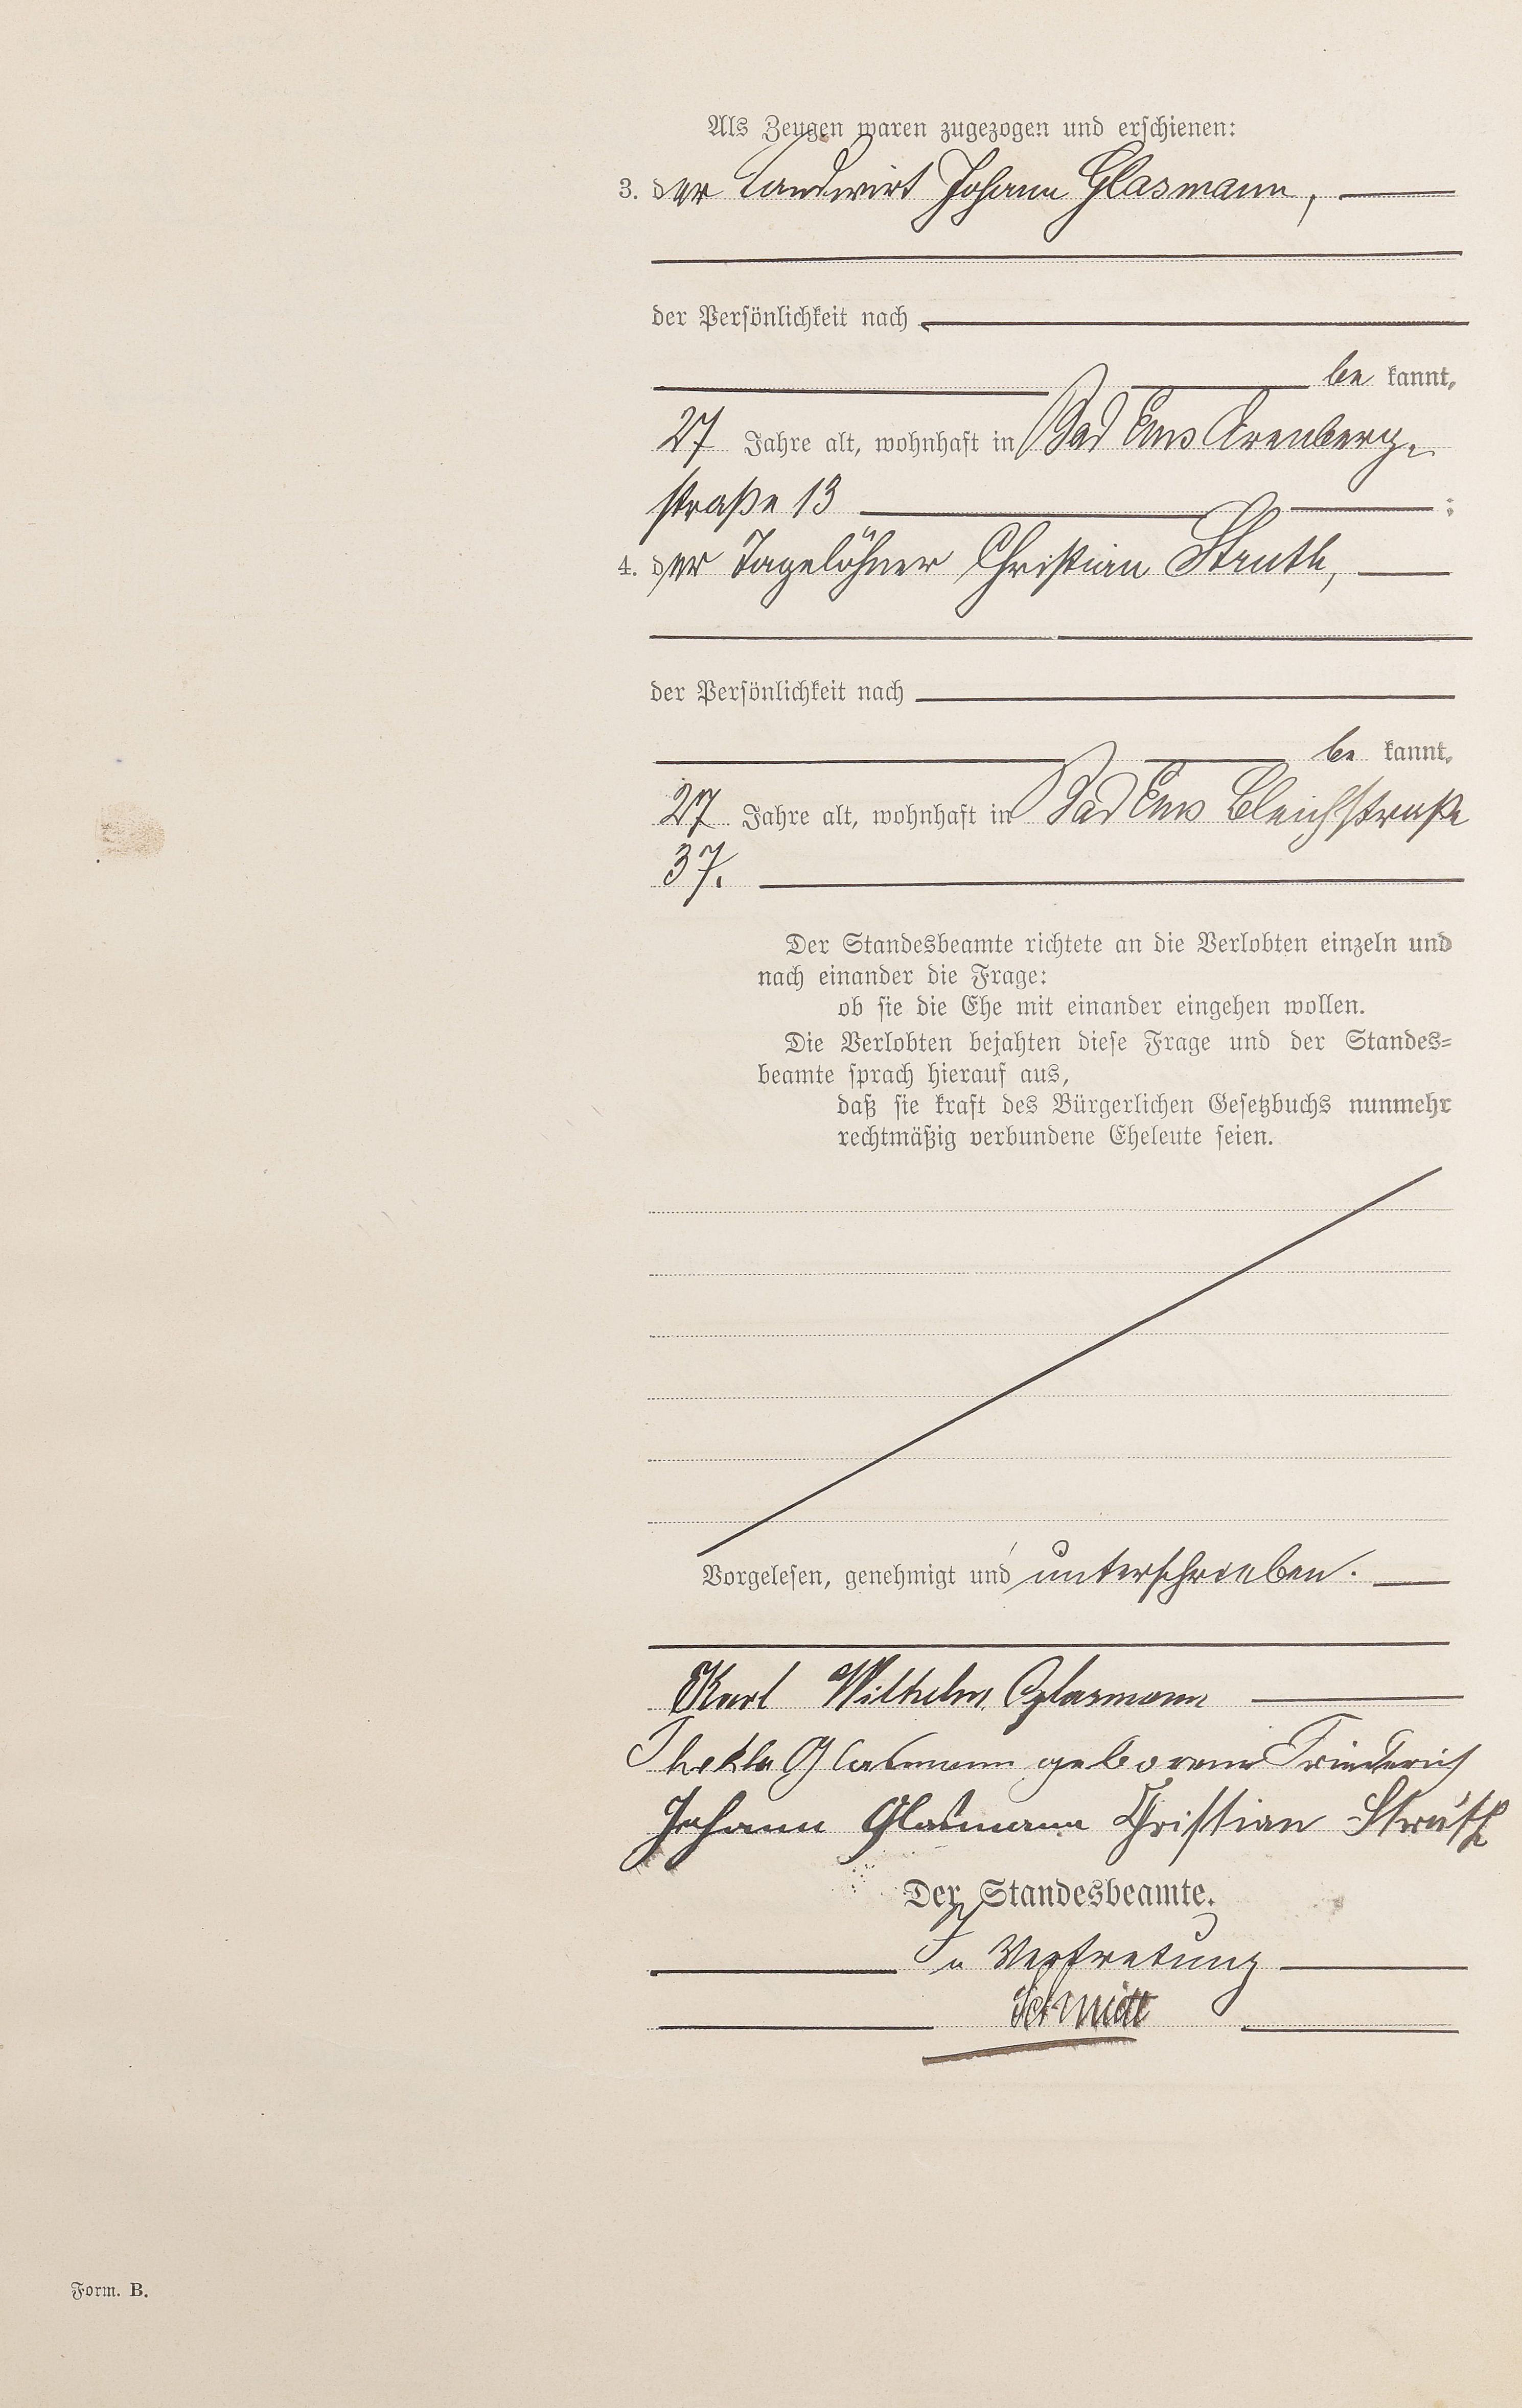 Als Zeugen waren zugezogen und erschienen:
3. der Landwirt Johann Glasmann,
der Persönlichkeit nach
be kannt,
27 Jahre alt, wohnhaft in Bad Ems Arenberg-
straße 13 ;
4. der Tagelöhner Christian Struth,
der Persönlichkeit nach
be kannt,
27 Jahre alt, wohnhaft in Bad Ems Bleichstraße
37.
Der Standesbeamte richtete an die Verlobten einzeln und
nach einander die Frage:
ob sie die Ehe mit einander eingehen wollen.
Die Verlobten bejahten diese Frage und der Standes=
beamte sprach hierauf aus,
daß sie kraft des Bürgerlichen Gesetzbuchs nunmehr
rechtmäßig verbundene Eheleute seien.
Vorgelesen, genehmigt und unterschrieben.
Karl Wilhelm Glasmann
Thekla Glasmann geborene Friederich
Johann Glasmann Christian Struth
Der Standesbeamte.
In Vertretung
Schmitt
Form. B.